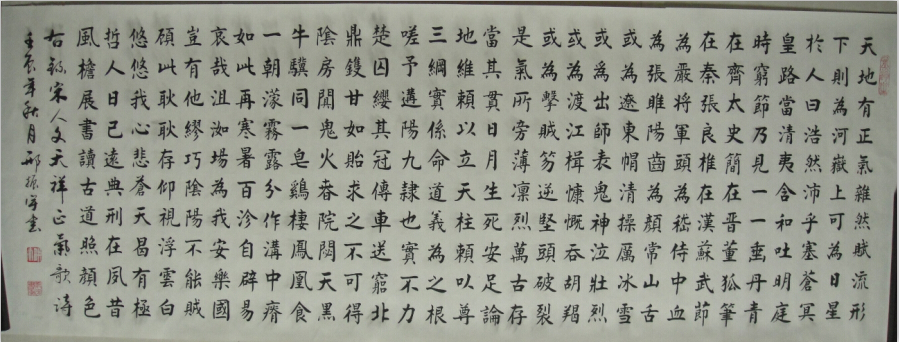 天地有正氣雜然賦流形
下則為河嶽上可為日星
於人曰浩然沛乎塞蒼冥
皇路當清夷含和吐明庭
時窮節乃見一一垂丹青
在齊太史簡在晉董狐筆
在秦張良椎在漢蘇武節
為嚴將軍頭為嵇侍中血
為張睢陽齒為顏常山舌
或為遼東帽清操厲冰雪
或為出師表鬼神泣壯烈
或為渡江楫慷慨吞胡羯
或為擊賊笏逆豎頭破裂
是氣所旁薄凜烈萬古存
當其貫日月生死安足論
地維賴以立天柱賴以尊
三綱實係命道義為之根
嗟予遘陽九隸也實不力
楚囚纓其冠傳車送窮北
鼎鑊甘如飴求之不可得
陰房闃鬼火春院閟天黑
牛驥同一皂鷄棲鳳凰食
一朝濛霧露分作溝中瘠
如此再寒暑百沴自辟易
哀哉沮洳場為我安樂國
豈有他繆巧陰陽不能賊
顧此耿耿存仰視浮雲白
悠悠我心悲蒼天曷有極
哲人日已遠典刑在夙昔
風檐展書讀古道照顏色
右錄宋人文天祥正氣歌詩
壬辰年秋月邢振書